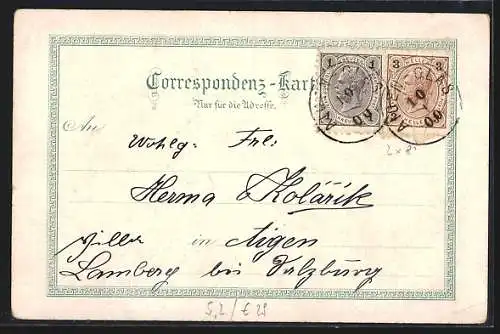 1 1 3 3
Correspondenz-Karte
Nur für die Adresse.
An
Wohlg. Frl.
Herma Kolářik
Villa in Aigen
Lamberg bei Salzburg